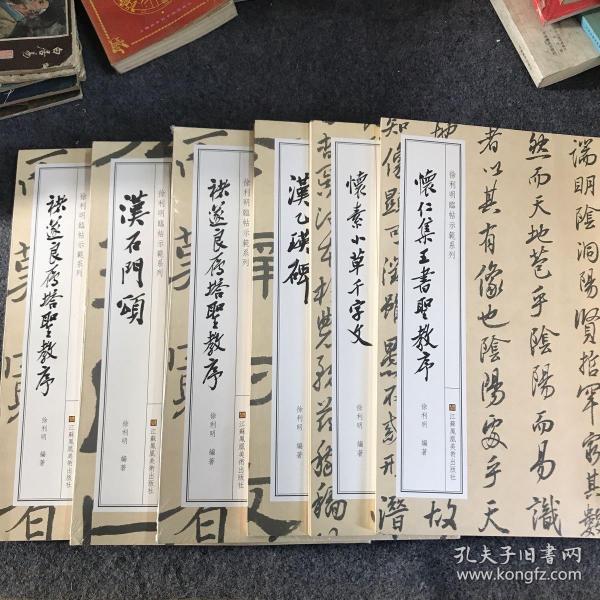 徐利明臨帖示範系列
褚遂良雁塔聖教序
徐利明 編著
江蘇鳳凰美術出版社
徐利明臨帖示範系列
漢石門頌
徐利明 編著
江蘇鳳凰美術出版社
徐利明臨帖示範系列
褚遂良雁塔聖教序
徐利明 編著
江蘇鳳凰美術出版社
漢乙瑛碑
徐利明 編著
徐利明臨帖示範系列
懷素小草千字文
徐利明 編著
徐利明臨帖示範系列
懷仁集王書聖教序
徐利明 編著
江蘇鳳凰美術出版社
端明陰洞陽賢哲罕窮其數
然而天地苞乎陰陽而易識
者以其有像也陰陽處乎天
故
知像顯可
潛
孔夫子旧书网
www.kongfz.com